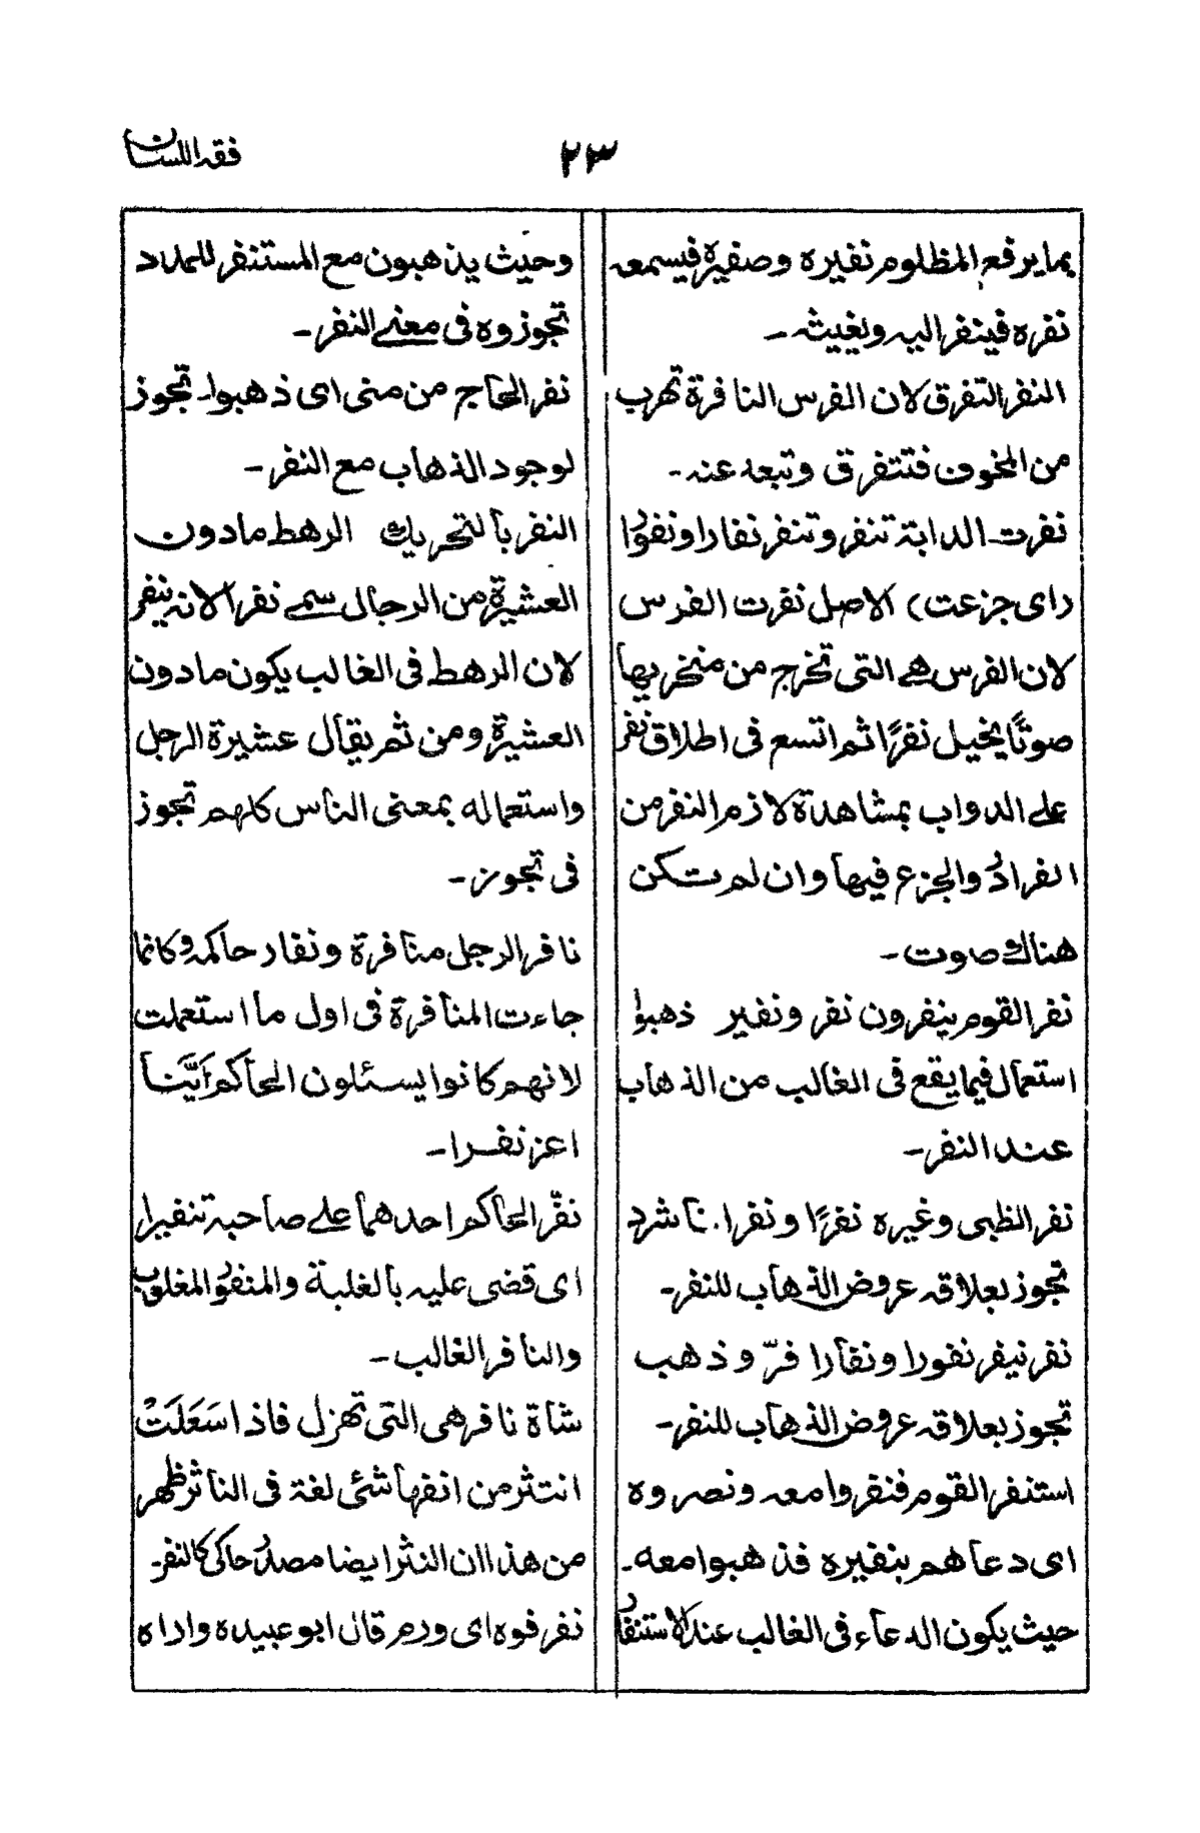 فقه اللسان
٢٣
بما يرفع المظلوم نفيره وصفيره فيسمعه
نفره فينفر اليه ويغيثه ـ
النفر التفرق لان الفرس النافرة تهرب
من المخوف فتتفرق وتبعد عنه ـ
نفرت الدابة تنفر وتنفر نفارا ونفورا
(اى جزعت) الاصل نفرت الفرس
لان الفرس هى التى تخرج من منخريها
صوتًا يخيل نفرًا ثم اتسع فى اطلاق نفر
على الدواب بمشاهدة لازم النفر من
الفرار والجزع فيها وان لم تكن
هناك صوت ـ
نفر القوم ينفرون نفر ونفير ذهبوا
استعمال فيما يقع فى الغالب من الذهاب
عند النفر ـ
نفر الظبى وغيره نفرًا ونفرانا شرد
تجوز بعلاقه عروض الذهاب للنفر ـ
نفر نيفر نفورا ونقارا فرّ وذهب
تجوز بعلاقه عروض الذهاب للنفر ـ
استنفر القوم فنفروا معه ونصروه
اى دعاهم بنفيره فذهبوا معه ـ
حيث يكون الدعاء فى الغالب عند الاستنفار
وحيث يذهبون مع المستنفر للمداد
تجوزوه فى معنى النفر ـ
نفر الحاج من منى اى ذهبوا ـ تجوز
لوجود الذهاب مع النفر ـ
النفر بالتحريك الرهط مادون
العشيرة من الرجال سمى نفرا لانه ينفر
لان الرهط فى الغالب يكون مادون
العشيرة ومن ثم يقال عشيرة الرجل
واستعماله بمعنى الناس كلهم تجوز
فى تجوز ـ
نافر الرجل منافرة ونفار حاكمه وكانما
جاءت المنافرة فى اول ما استعملت
لانهم كانوا يسئلون الحاكم اَيَّنا
اعز نفرا ـ
نفّر الحاكم احدهما على صاحبه تنفيرا
اى قضى عليه بالغلبة والمنفور المغلوب
والنافر الغالب ـ
شاة نافر هى التى تهزل فاذا سَعَلَتْ
انتثر من انفها شئى لغة فى الناثر ظهر
من هذا ان النثر ايضا مصدر حاكى كالنفر ـ
نفر فوه اى ورم قال ابو عبيده واراه